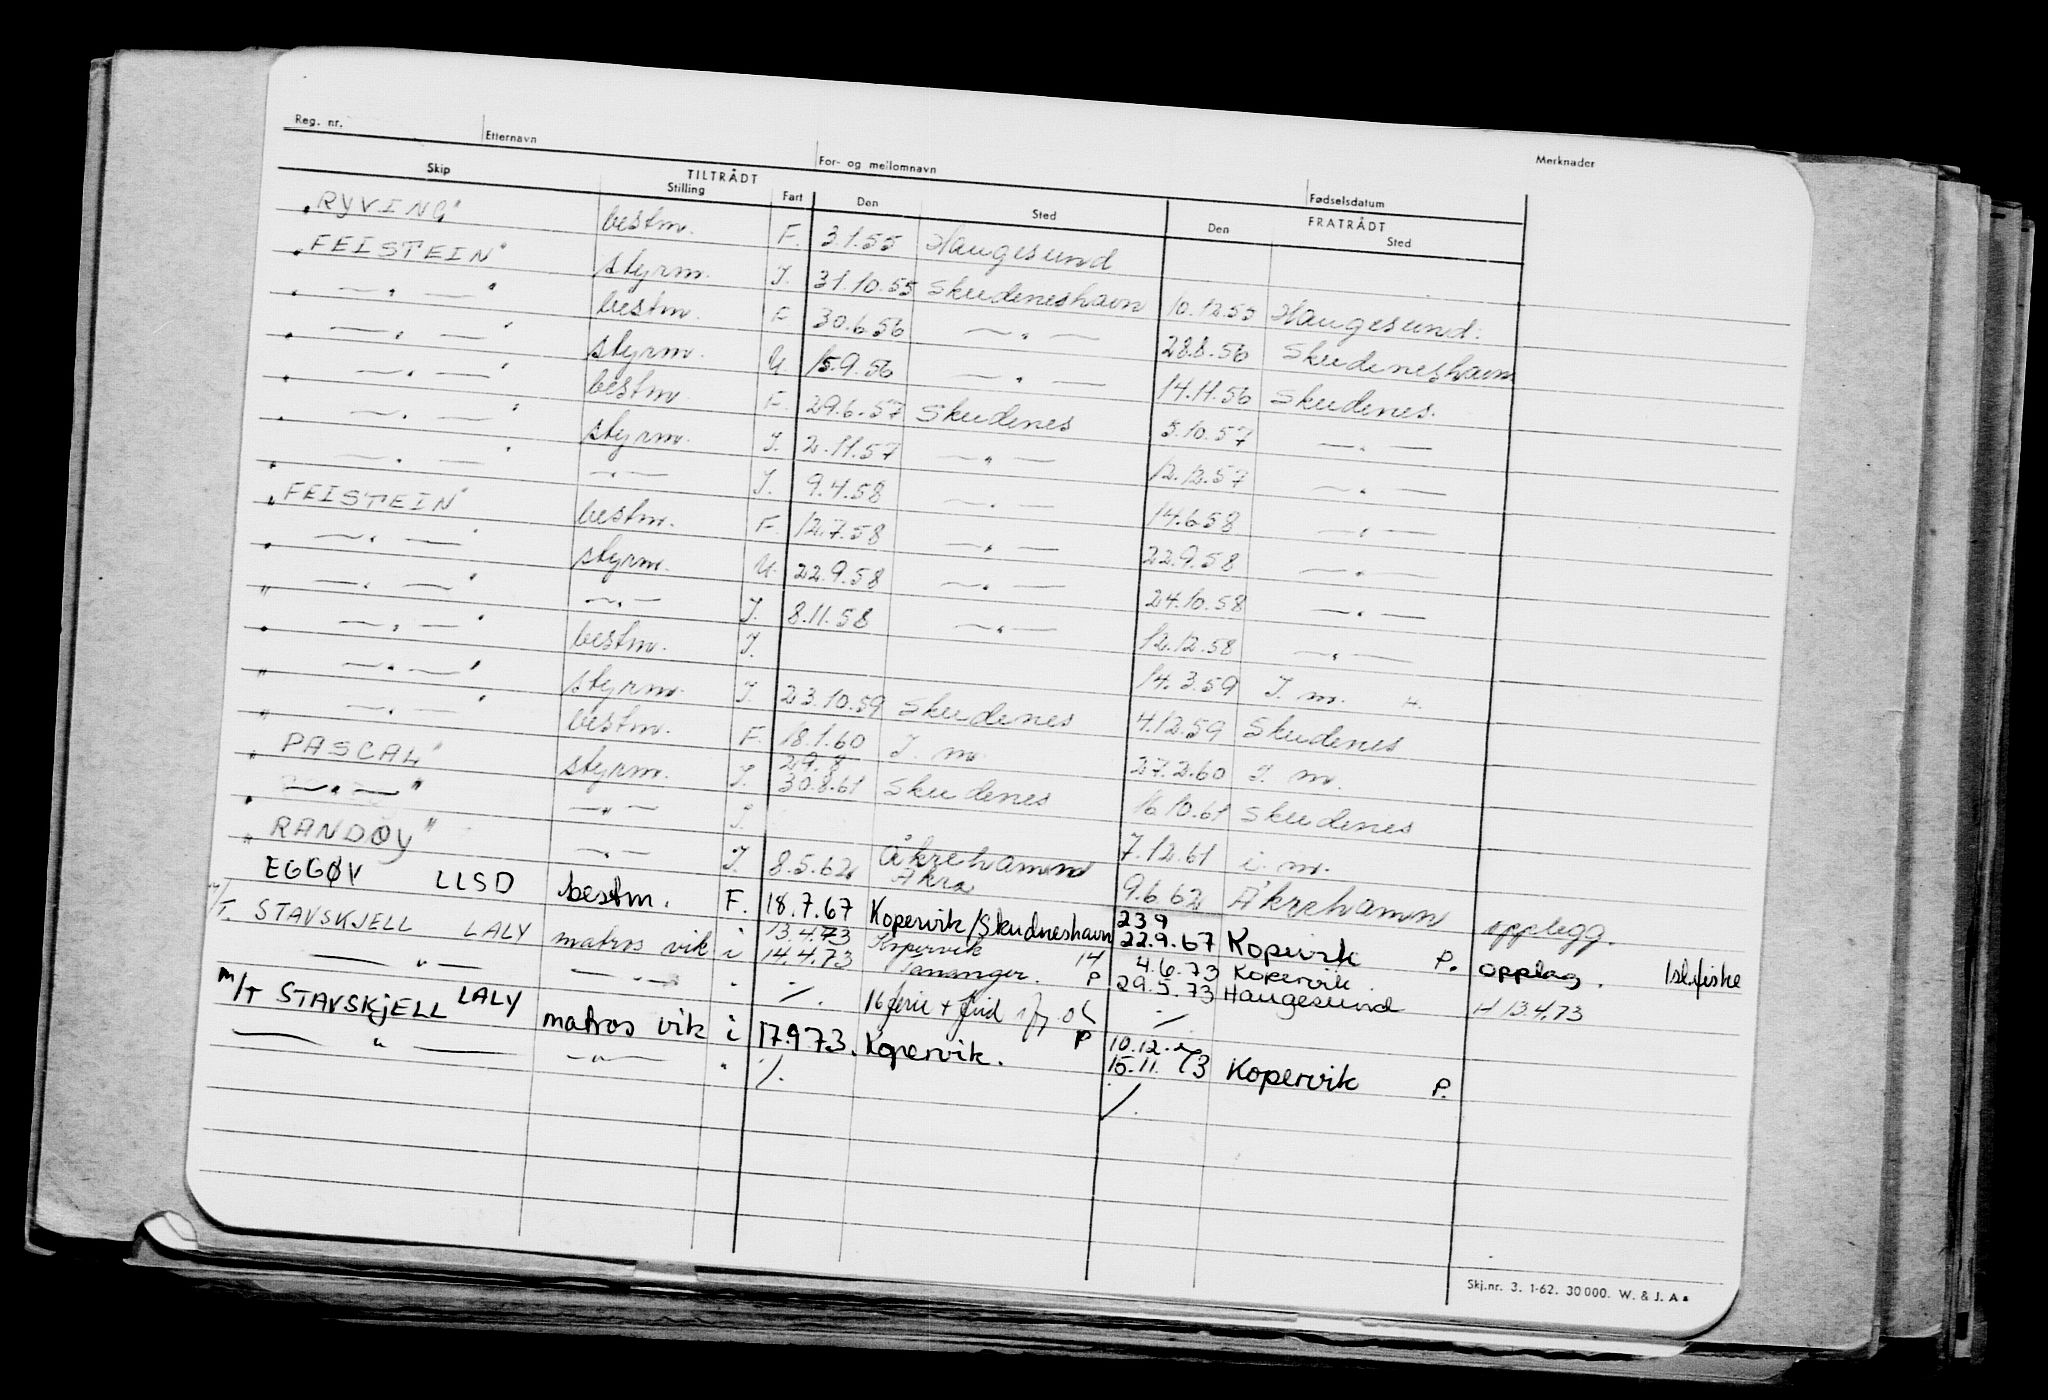 Reg. nr. Etternavn For- og mellomnavn Fødselsdatum Merknader
Skip TILTRÅDT Stilling Fart Den Sted FRATRÅDT Den Sted
"RYVING" bestm. F. 3.1.55 Haugesund
"FEISTEIN" styrm. I. 31.10.55 Skudeneshavn 10.12.55 Haugesund.
" —"— " bestm. F. 30.6.56 —"— 28.8.56 Skudeneshavn
" —"— " styrm. U. 15.9.56 —"— 14.11.56 Skudenes.
" —"— " bestm. F. 29.6.57 Skudenes 5.10.57 —"—
" —"— " styrm. I. 2.11.57 —"— 12.12.57 —"—
" —"— " —"— I. 9.4.58 —"— 14.6.58 —"—
"FEISTEIN" bestm. F. 12.7.58 —"— 22.9.58 —"—
" —"— " styrm. U. 22.9.58 —"— 24.10.58 —"—
" —"— " —"— I. 8.11.58 —"— 12.12.58 —"—
" —"— " bestm. I. 14.3.59 I. m. H.
" —"— " styrm. I. 23.10.59 Skudenes 4.12.59 Skudenes
" —"— " bestm. F. 18.1.60 I. m. 27.2.60 I. m.
"PASCAL" styrm. I. 29.8 30.8.61 Skudenes 16.10.61 Skudenes
" —"— " —"— I. 7.12.61 i. m.
"RANDØY" —"— I. 8.5.62 Åkrehamn Åkra 9.6.62 Åkrehamn opplegg.
EGGØY LLSD bestm. F. 18.7.67 Kopervik/Skudneshavn 23.9 22.9.67 Kopervik P. opplag. Isl.fiske
M/T. STAVSKJELL LALY matros vik i 13.4.73 14.4.73 Kopervik Tananger. 14 P 4.6.73 29.5.73 Kopervik. Haugesund H 13.4.73
—"— —"— " ·/. 16 ferie + frid ·/.
M/T STAVSKJELL LALY matros vik i 17.9.73. Kopervik. P 10.12. 15.11.73 Kopervik P.
—"— —"— " ·/. ·/.
Skj.nr. 3. 1-62. 30 000. W. & J. A s